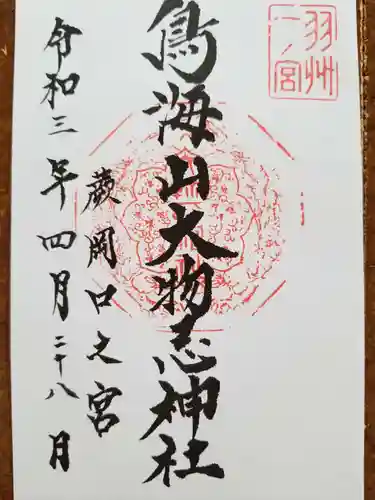 羽州一ノ宮
鳥海山大物忌神社
蕨岡口之宮
令和三年四月二十八日